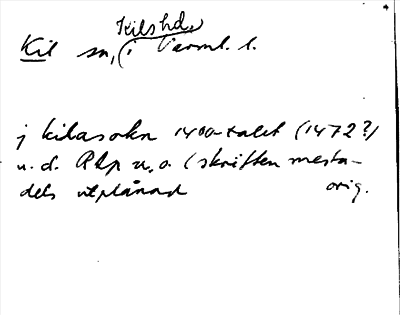 Kils hd,
Kil sn, i Värml. l.
j kilasokn 1400-talet (1472?)
u. d. Rep u. o. (skriften mesta-
dels utplånad orig.